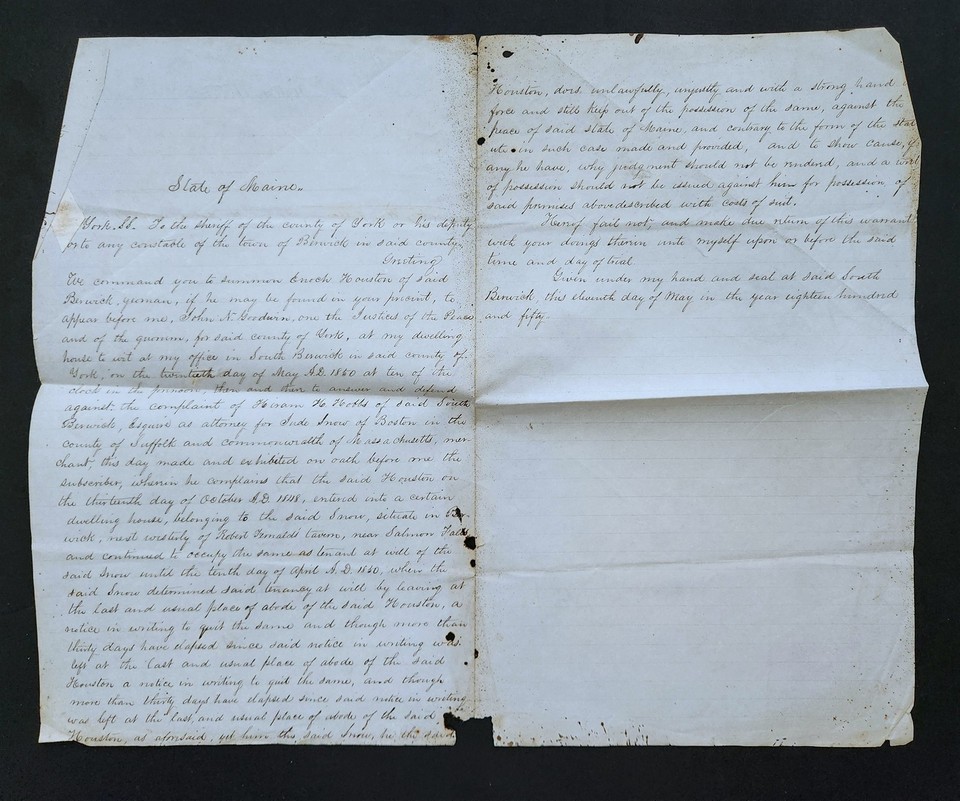 State of Maine.
York, SS. To the sheriff of the county of York or his deputy
or to any constable of the town of Berwick in said county.
Greeting
We command you to summon Enoch Houston of said
Berwick, yeoman, if he may be found in your precint, to
appear before me, John N. Goodwin, one the Justices of the Peace
and of the quorum, for said county of York, at my dwelling
house to wit at my office in South Berwick in said county of
York, on the twentieth day of May A.D. 1850 at ten of the
clock in the forenoon, then and there to answer and defend
against the complaint of Hiram H. Hobbs of said South
Berwick, Esquire as attorney for Jude Snow of Boston in the
county of Suffolk and commonwealth of Massachusetts, mer-
chant, this day made and exhibited on oath before me the
subscriber, wherein he complains that the said Houston on
the thirteenth day of October A.D. 1848, entered into a certain
dwelling house, belonging to the said Snow, situate in Ber-
wick, next westerly of Robert Fernalds tavern, near Salmon Falls
and continued to occupy the same as tenant at will of the
said Snow until the tenth day of April A.D. 1850, when the
said Snow determined said tenancy at will by leaving at
the last and usual place of abode of the said Houston, a
notice in writing to quit the same and though more than
thirty days have elapsed since said notice in writing was
left at the last and usual place of abode of the said
Houston a notice in writing to quit the same, and though
more than thirty days have elapsed since said notice in writing
was left at the last, and usual place of abode of the said
Houston, as aforsaid, yet him the said Snow, he the said
Houston, does unlawfully, unjustly and with a strong hand
force and still keep out of the possession of the same, against the
peace of said state of Maine, and contrary to the form of the stat
ute in such case made and provided, and to show cause, if
any he have, why judgment should not be renderd, and a writ
of possession should not be issued against him for possession of
said premises above described with costs of suit.
Hereof fail not, and make due return of this warrant
with your doings therein unto myself upon or before the said
time and day of trial
Given under my hand and seal at said South
Berwick, this eleventh day of May in the year eighteen hundred
and fifty.